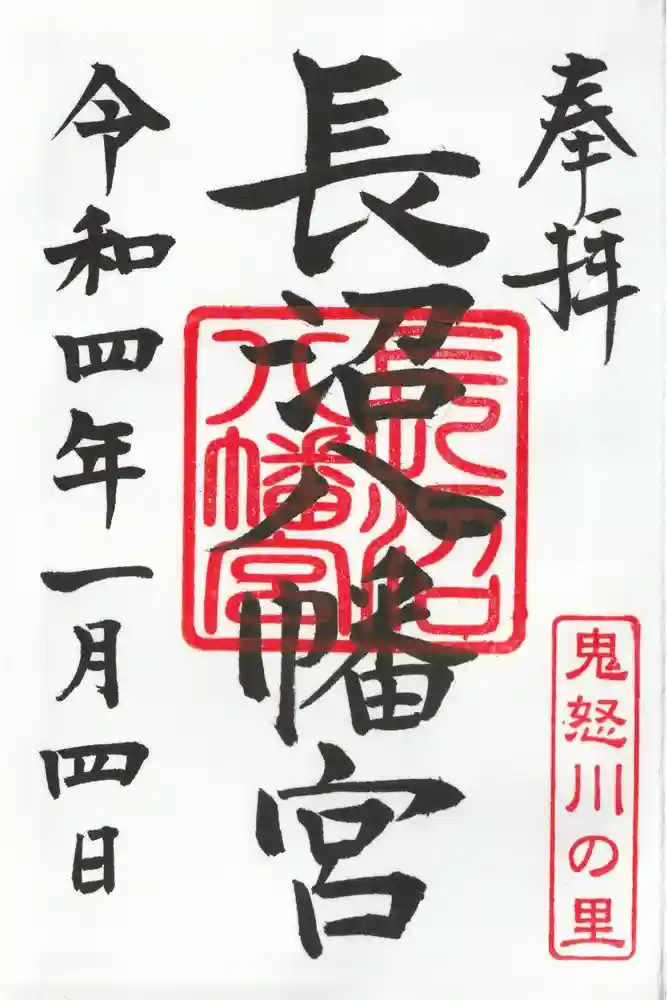 奉拝
鬼怒川の里
長沼八幡宮
長沼
八幡宮
令和四年一月四日